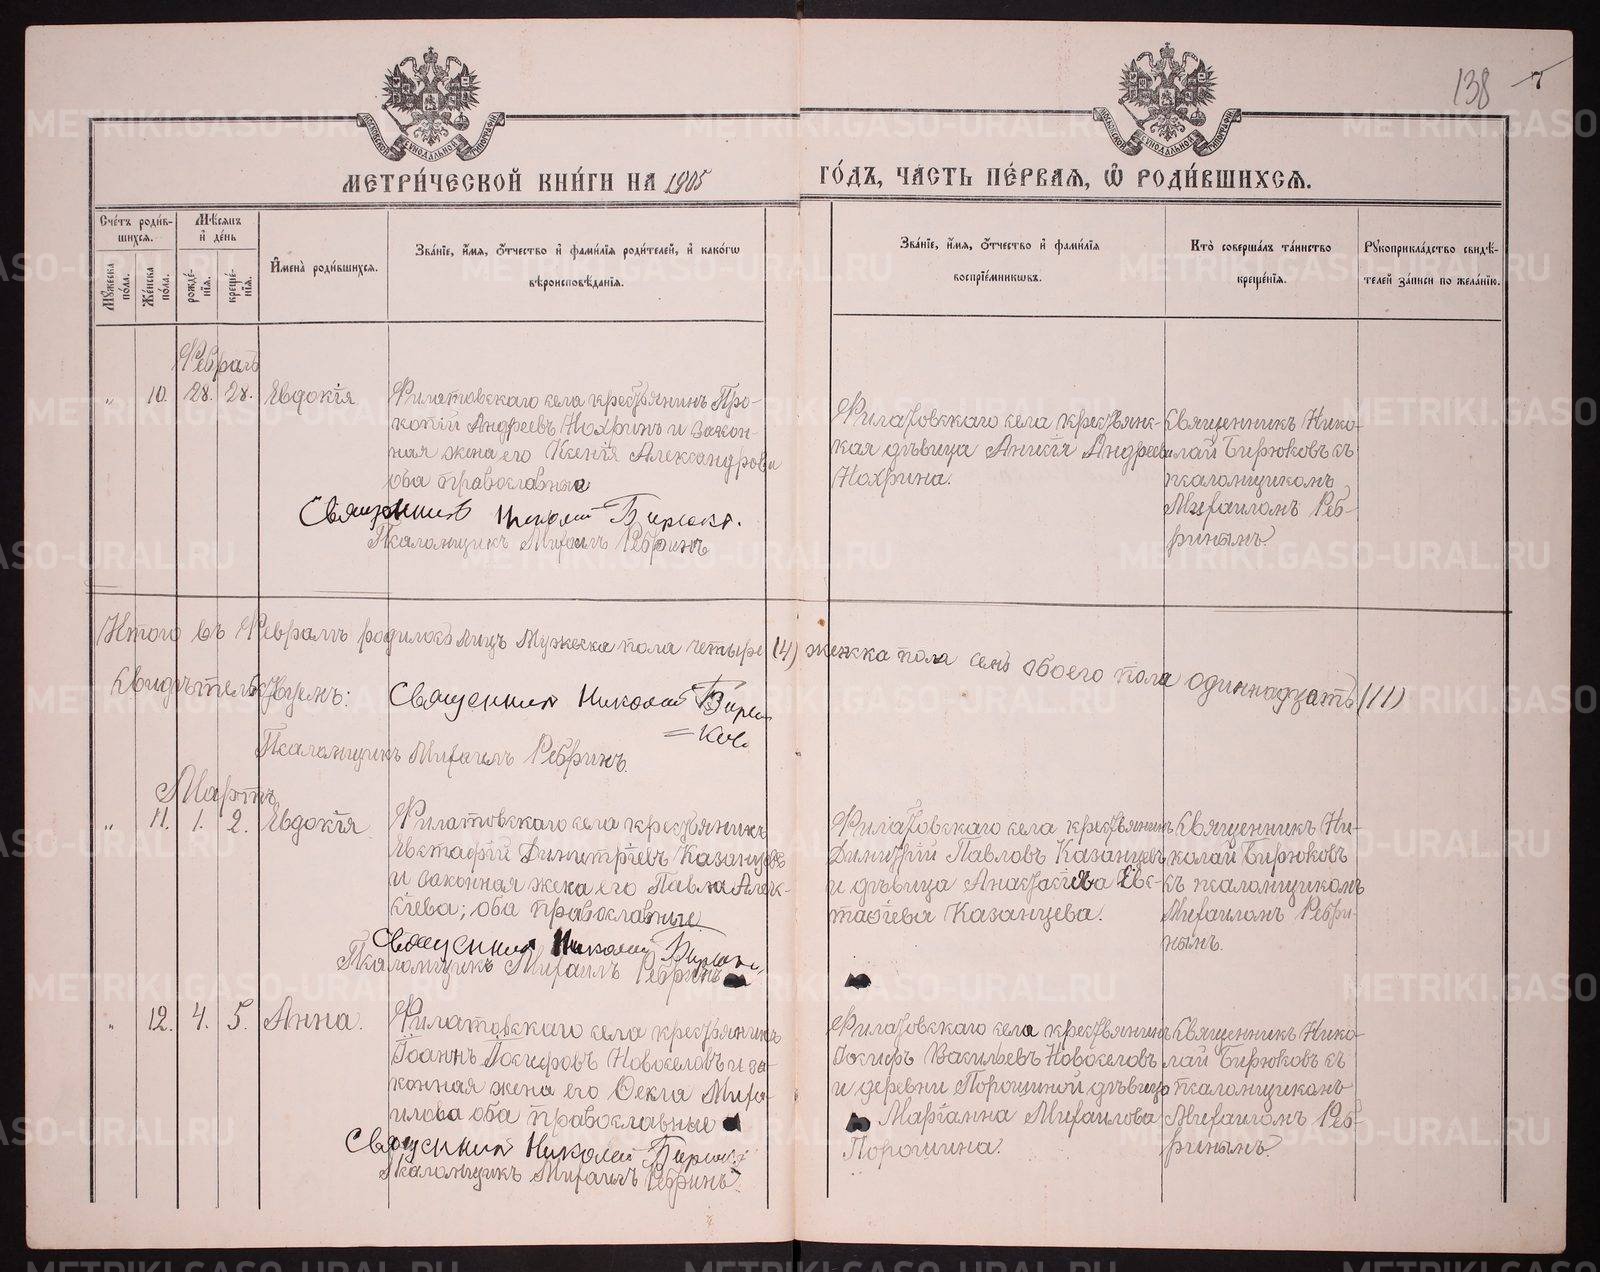 138 7
МЕТРИ́ЧЕСКОЙ КНИ́ГИ НА 1905
ГО́ДЪ, ЧА́СТЬ ПЕ́РВАЯ, Ѽ РОДИ́ВШИХСЯ.
Сче́тъ роди́в-
шихся.
Мꙋ́жеска по́ла.
Же́нска по́ла.
Мѣ́сяцъ
и҆ де́нь
рожде́-
нїя.
креще́-
нїя.
И҆мена̀ роди́вшихся.
Зва́нїе, и҆́мя, ѻ҆́тчество и҆ фами́лїя роди́телей, и҆ како́гѡ
вѣроисповѣ́данїя.
Зва́нїе, и҆́мя, ѻ҆́тчество и҆ фами́лїя
воспрїе́мникѡвъ.
Кто̀ соверша́лъ та́инство
креще́нїя.
Рꙋкоприкла́дство свидѣ́-
телей за́писи по жела́нїю.
Февраль
" 10. 28. 28. Евдокія
Филатовскаго села крестьянинъ Про-
копій Андреевъ Нохринъ и закон-
ная жена его Ксенія Александрова
оба православные
Священникъ Николай Бирюков.
Псаломщикъ Михаилъ Ребринъ
Филатовскаго села крестьянс-
кая дѣвица Анисія Андреева
Нохрина.
Священникъ Нико-
лай Бирюковъ съ
псаломщикомъ
Михаиломъ Реб-
ринымъ.
Итого въ Февралѣ родилось лицъ Мужеска пола четыре (4) женска пола семь обоего пола одиннадцать (11)
Свидѣтельствуемъ: Священникъ Николай Бирю-
=ков.
Псаломщикъ Михаилъ Ребринъ.
Мартъ
" 11. 1. 2. Евдокія
Филатовскаго села крестьянинъ
Евстафій Димитріевъ Казанцевъ
и законная жена его Павла Алек-
сіева; оба православные
Священникъ Николай Бирюков.
Псаломщикъ Михаилъ Ребринъ
Филатовскаго села крестьянинъ
Димитрій Павловъ Казанцевъ
и дѣвица Анастасіева Евс-
тафіева Казанцева.
Священникъ Ни-
колай Бирюковъ
съ псаломщикомъ
Михаиломъ Ребри-
нымъ.
" 12. 4. 5. Анна.
Филатовскаго села крестьянинъ
Іоаннъ Іосифовъ Новоселовъ и за-
конная жена его Ѳекла Миха-
илова оба православные
Священникъ Николай Бирюков
Псаломщикъ Михаилъ Ребринъ
Филатовскаго села крестьянинъ
Іосифъ Васильевъ Новоселовъ
и деревни Порошиной дѣвица
Маріанна Михаилова
Порошина.
Священникъ Нико-
лай Бирюковъ съ
псаломщикомъ
Михаиломъ Реб-
ринымъ.
METRIKI.GASO-URAL.RU